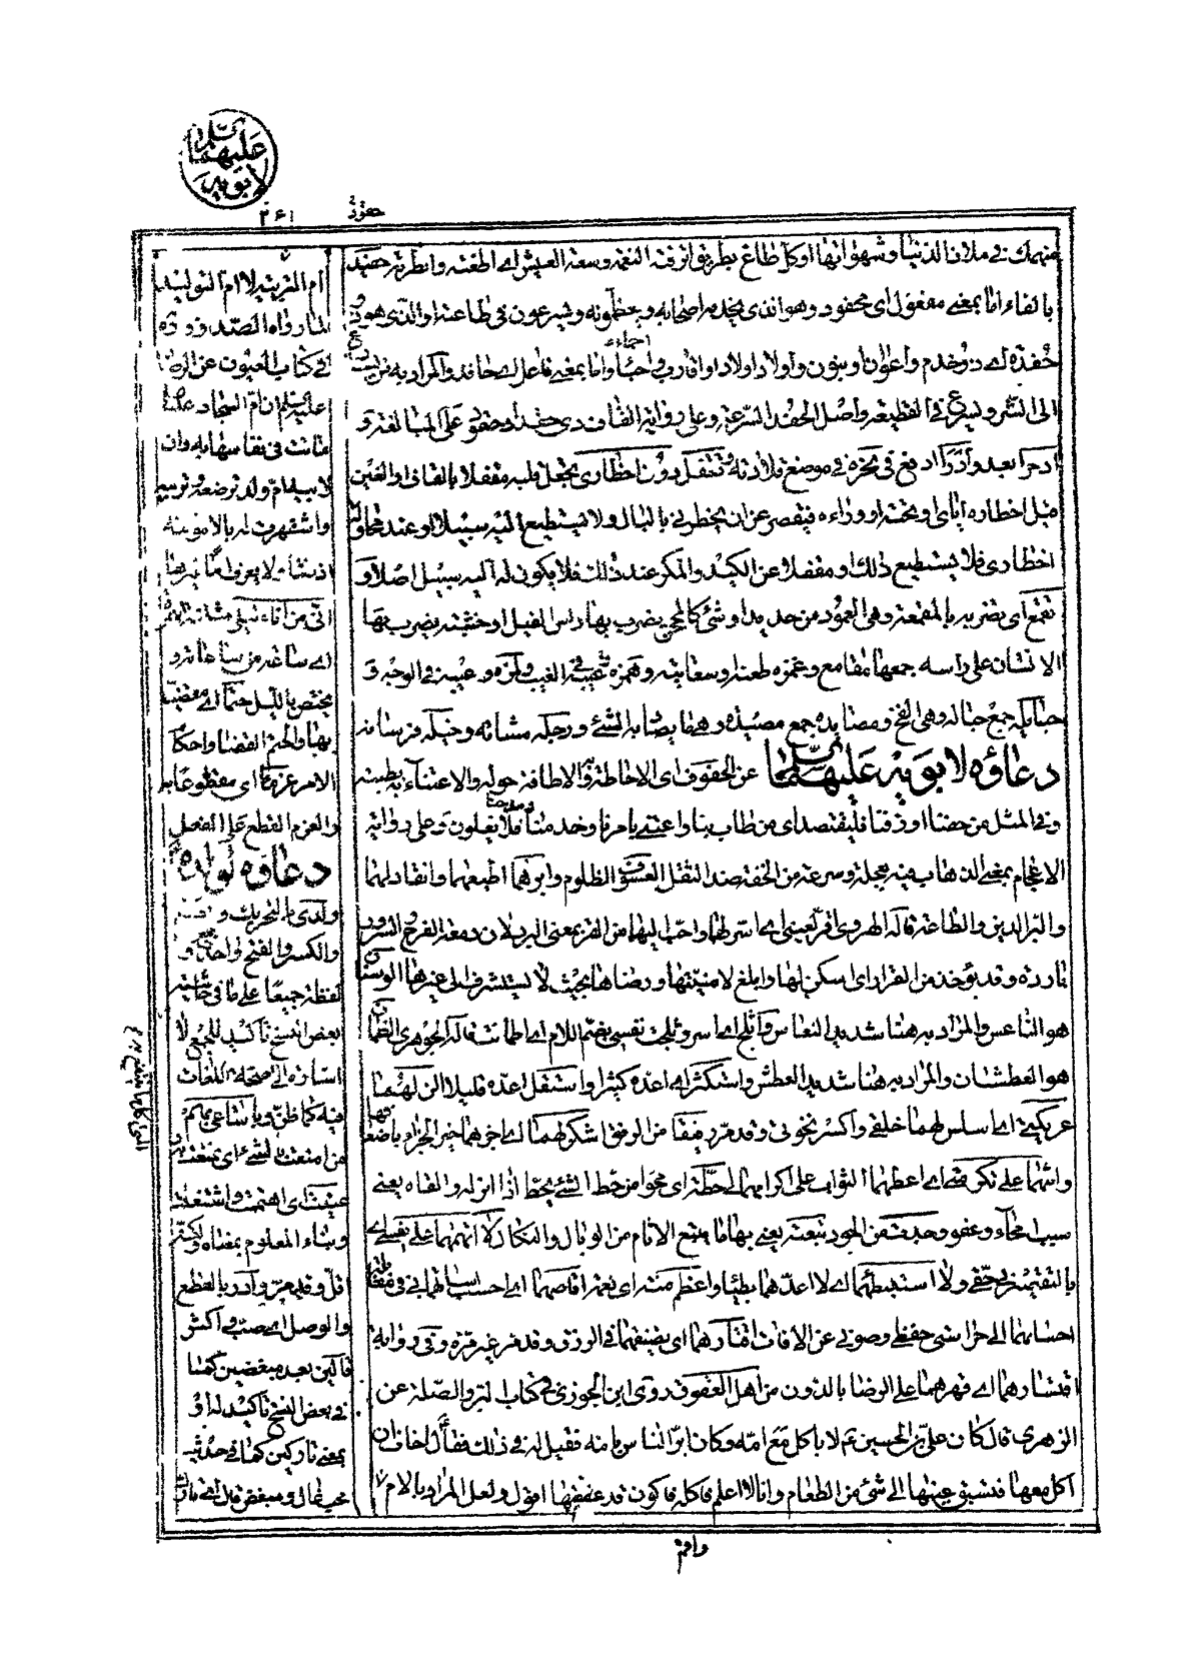 عليهما
لابويه
٢٤١
منهمك في ملاذ الدنيا وشهواتها او كل طاغ بطريق اترفته النعمة وسعة العيش اي اطغته وابطرته حفيد
بالفاء اما بمعنى مفعول اي محفود وهو الذي يخدمه اصحابه ويعظمونه ويسرعون في طاعته او الذي هو ذو
حفدة اي ذو خدم واعوان او بنون واولاد اولاد او اقارب او احماء واما بمعنى فاعل اي حافد والمراد به من يسرع
الى الشر ويسرع في القطيعة واصل الحفد السرعة وعلى رواية القاف ذي حقد وحقود على المبالغة و
ادحر ابعد وادرأ ادفع في نحره في موضع قلادته وتقفل دون اخطاري يجعل قلبه مقفلا بالقاف او الغين
قبل اخطاره اياي او تحته او وراءه فيقصر عن ان يخطرني بالبال ولا يستطيع اليه سبيلا او عند
اخطاري فلا يستطيع ذلك او مغفلا عن الكيد والمكر عند ذلك فلا يكون له اليه سبيل اصلا و
تقمع اي تضربه بالمقمعة وهي العمود من حديد او شئ كالمحجن يضرب بها راس الفيل او خشبة يضرب بها
الانسان على راسه جمعها مقامع وغمزه طعنه وسعايته وهمزه غيبته في الغيب ولمزه وعيبه في الوجه و
حبايله جمع حبالة وهي الفخ ومصايده جمع مصيدة وهي ما يصاد به الشئ ورجله مشاته وخيله فرسانه
دعاؤه لابويه عليهما السلام
عن الحفوف اي الاحاطة والاطافة حوله والاعتناء به
وفي المثل من حفنا او رفنا فليقتصد اي من طاف بنا واعتنى بامرنا ومدحنا فلا يغلون وعلى رواية
الاعجام بمعنى الذهاب فيه بعجلة وسرعة من الخفة ضد الثقل العسوف الظلوم وابرهما اطيعهما وانقاد لهما
والبر الدين والطاعة قاله الهروي اقر لعيني اي اسر لها واحب اليها من القر بمعنى البرد لان دمعة الفرح والسرور
باردة وقد يؤخذ من القرار اي اسكن لها وابلغ لامنيتها ورضاها بحيث لا يستشرف الى غيرها الوسنان
هو الناعس والمراد به هنا شديد النعاس واثلج اي اسر وثلجت نفسي بضم اللام اي اطمانت قاله الجوهري الظمآن
هو العطشان والمراد به هنا شديد العطش واستكثر اي اعده كثيرا واستقل اعده قليلا الن لهما
عريكتي اي اسلس لهما خلقي واكسر نخوتي وقد مر رفيقا من الرفق اشكر لهما اي اجزهما خير الجزاء
واثبهما على تكرمتي اي اعطهما الثواب على اكرامهما لي حطة اي محوا من حط الشئ يحط اذا انزله والقاه يعني
سبب محاء وعفو وحديث من الجود تبعته يعني بها ما يتبع الاثام من الوبال والنكال لا اتهمهما على نفسي اي
بالتقصير في حقي ولا استبطئهما اي لا اعدهما بطيئا واعظم منة اي نعمة اقاصهما اي احسب
احسانهما الي حراستي حفظي وصوني عن الافات اقتارهما اي تضيقهما في الرزق وقد مر غير مرة وفي رواية
اقتسارهما اي قهرهما على الرضا بالدون من اهل العقوق روى ابن الجوزي في كتاب البر والصلة عن
الزهري قال كان علي بن الحسين ع م لا ياكل مع امه وكان ابر الناس بامه فقيل له في ذلك فقال اخاف ان
اكل معها فتسبق عينها الى شئ من الطعام وانا لا اعلم فاكله فاكون قد عققتها اقول ولعل المراد بالام
وافق
ام التربية لا ام التوليد
لما رواه الصدوق ره
في كتاب العيون عن الرضا
عليه السلم ان ام السجاد
ماتت في نفاسها به وان
لابيه ام ولد ترضعه وتربيه
واشتهرت له بالامومة
اذ نشأ ولا يعرف اما غيرها
اي ساعة من ساعاته و
يختص بالليل حتما اي مقضيا
بها والحتم القضاء واحكام
الامر عزما اي مقطوعا به
والعزم القطع على الفعل
دعاؤه لولده
ولدي بالتحريك و
والكسر والفتح واحد و
لفظة جميعا على ما في حاشية
بعض النسخ تاكيد للجمع لا
اشارة الى صحة اللغات
فيه كما ظن وبامتاعي بهم
من امتعت بالشئ اي تمتعت به
عنيت اي اهتممت واشتغلت
وبناء المعلوم بمعناه
اقل وقد مر وادر بالقطع
والوصل اي صب واكثر
في بعض النسخ تاكيد له او
بمعنى تاركين كما في حديث
محب غال ومبغض قال